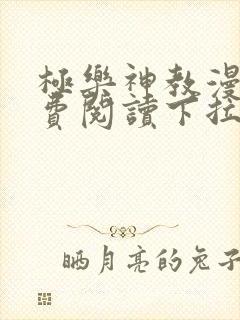 極樂神教漫
費閱讀下拉
晒月亮的兔子